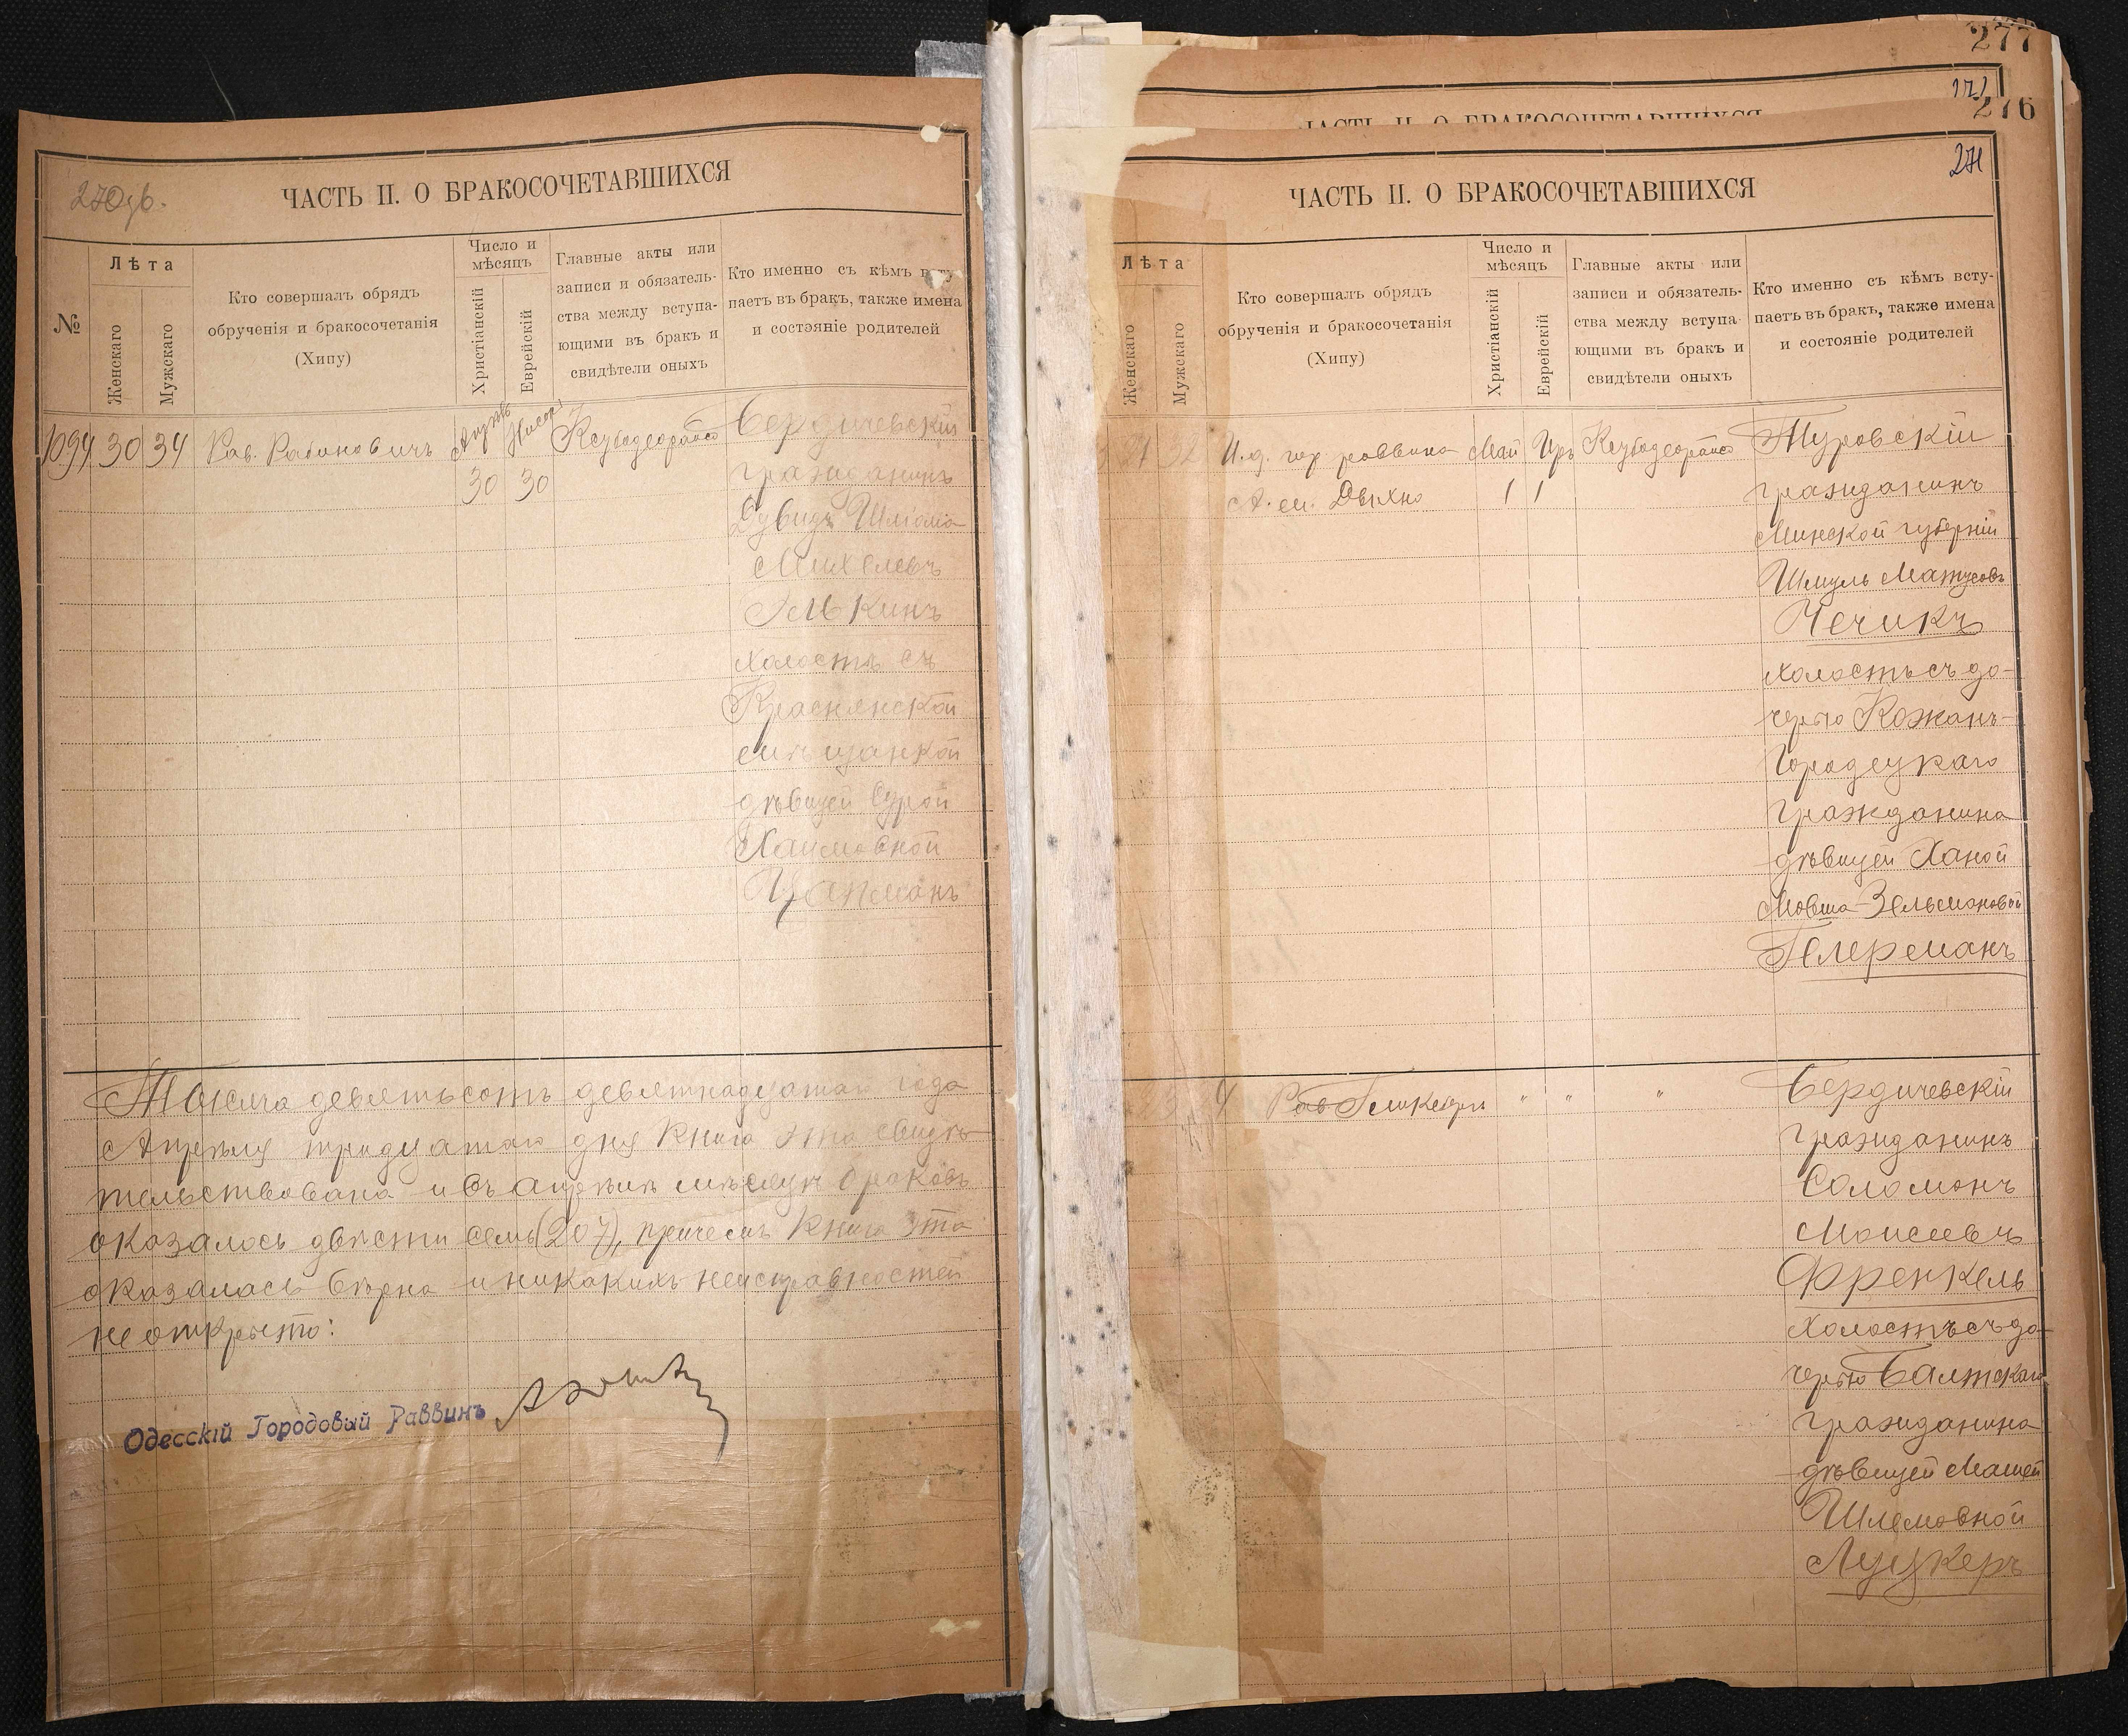 270 об.
ЧАСТЬ II. О БРАКОСОЧЕТАВШИХСЯ
№
Лѣта
Женскаго
Мужскаго
Кто совершалъ обрядъ
обрученія и бракосочетанія
(Хипу)
Число и
мѣсяцъ
Христіанскій
Еврейскій
Главные акты или
записи и обязатель-
ства между вступа-
ющими въ бракъ и
свидѣтели оныхъ
Кто именно съ кѣмъ всту
паетъ въ бракъ, также имена
и состояніе родителей
1094 30 34 Рав. Рабиновичъ
30 30
Бердичевскій
гражданинъ
Дувидъ Шлiома
Михелевъ
Элькинъ
холостъ съ
Краснянской
мѣщанкой
дѣвицей Сурой
Хаимовной
Цапманъ
Тысяча девятьсотъ девятнадцатаго года
Апрѣля тридцатаго дня Книга эта свидѣ
тельствована и въ апрѣлѣ мѣсяцѣ браковъ
оказалось двѣсти семь (207), причемъ Книга эта
оказалась вѣрна и никакихъ неисправностей
не открыто:
Одесскій Городовый Раввинъ
277
276
271
ЧАСТЬ II. О БРАКОСОЧЕТАВШИХСЯ
ЧАСТЬ II. О БРАКОСОЧЕТАВШИХСЯ
Лѣта
Женскаго
Мужскаго
Кто совершалъ обрядъ
обрученія и бракосочетанія
(Хипу)
Число и
мѣсяцъ
Христіанскій
Еврейскій
Главные акты или
записи и обязатель-
ства между вступа
ющими въ бракъ и
свидѣтели оныхъ
Кто именно съ кѣмъ всту-
паетъ въ бракъ, также имена
и состояніе родителей
32 И.д. гор раввина Май Иръ
А. м. Дыхно 1 1
Туровскій
гражданинъ
Минской губерніи
Шмуль Матусовъ
Чечикъ
холостъ съ до-
черью Кожанъ-
Городецкаго
гражданина
дѣвицей Ханой
Мовша-Зельмановой
Гелерманъ
4 Рав " " "
Бердичевскій
гражданинъ
Соломонъ
Моисеевъ
Френкель
холостъ съ до-
черью Балтскаго
гражданина
дѣвицей Маней
Шлемовной
Луцкеръ